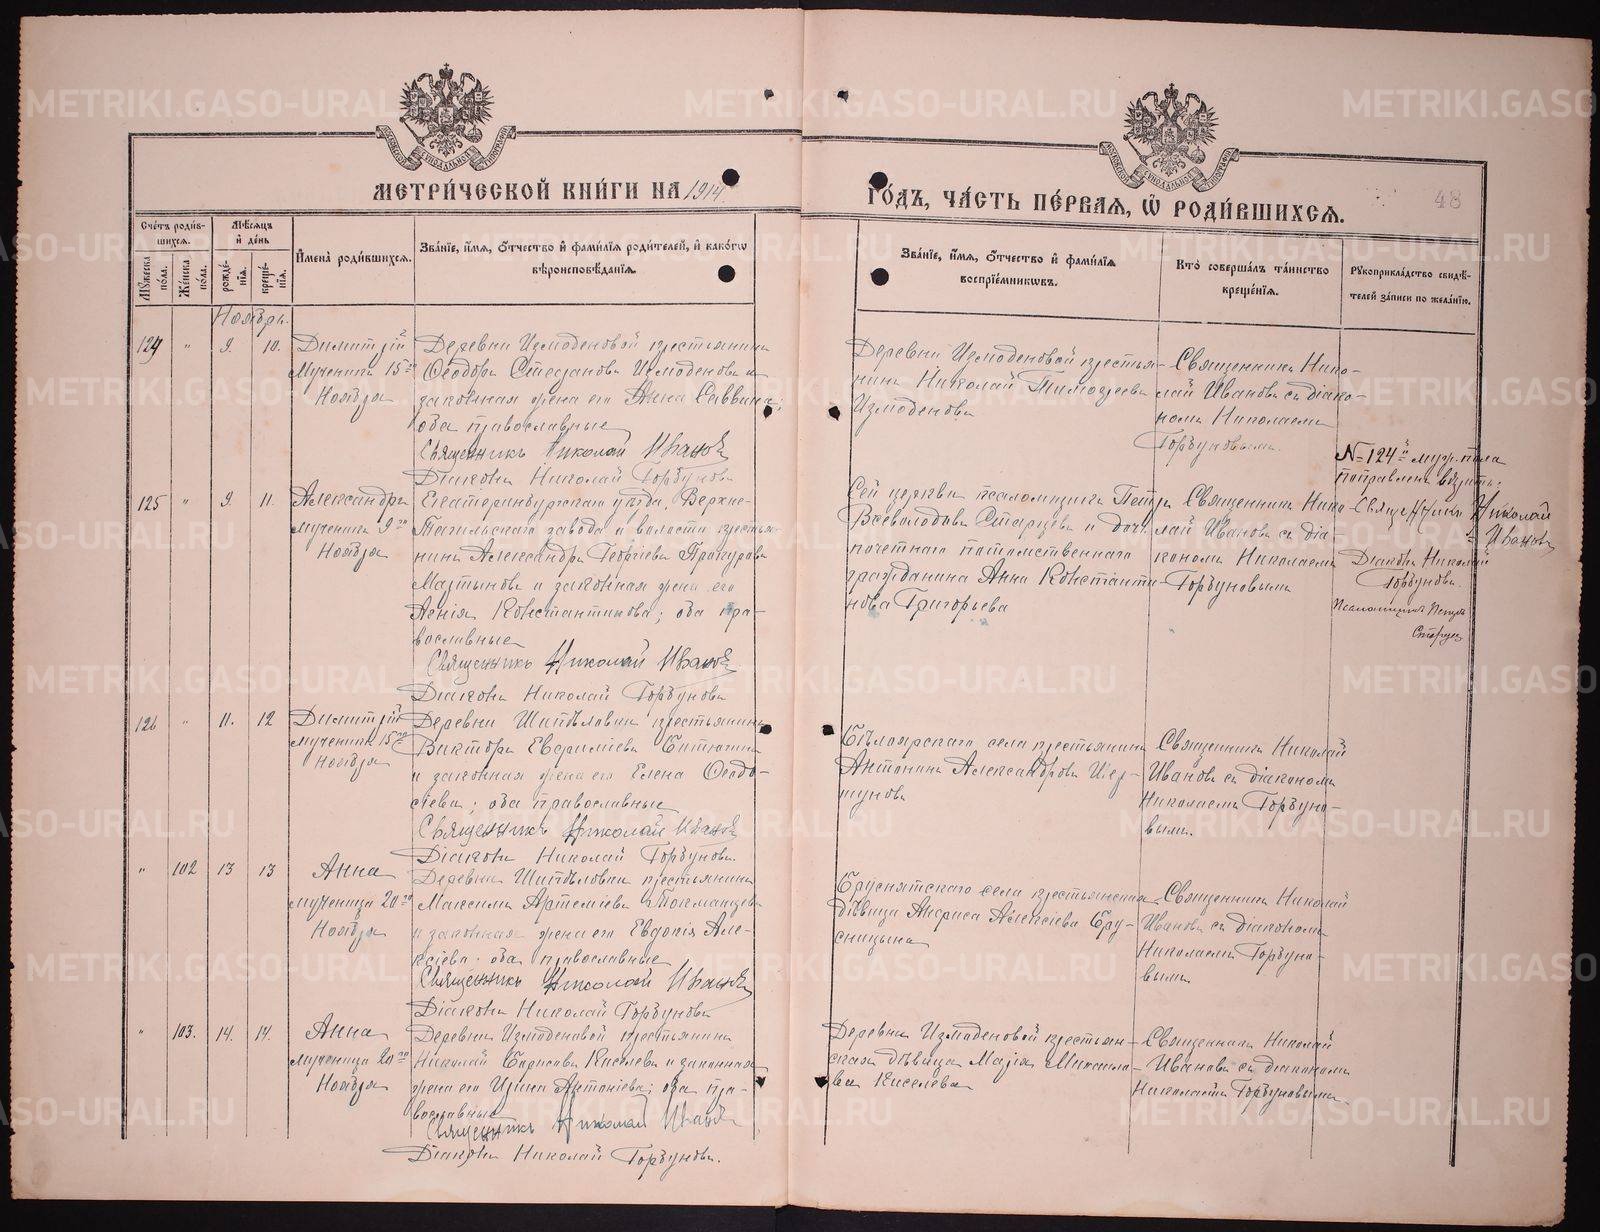 МЕТРИЧЕСКОЙ КНИГИ НА 1914
ГОДЪ, ЧАСТЬ ПЕРВАЯ, Ѡ РОДИВШИХСЯ.
48
Счетъ родив-
шихся.
Мѣсяцъ
и день
Мужеска
пола.
Женска
пола.
рожде-
нія.
креще-
нія.
Имена родившихся.
Званіе, имя, отчество и фамилія родителей, и какогѡ
вѣроисповѣданія.
Званіе, имя, отчество и фамилія
воспріемникѡвъ.
Кто совершалъ таинство
крещенія.
Рукоприкладство свидѣ-
телей записи по желанію.
Ноябрь.
124 " 9. 10.
Димитрій
Мученика 15го
Ноября
Деревни Измоденовой крестьянинъ
Ѳеодоръ Стефановъ Измоденовъ и
законная жена его Анна Саввина;
оба православные
Священникъ Николай Ивановъ
Діаконъ Николай Горбуновъ
Деревни Измоденовой крестья-
нинъ Николай Тимоѳеевъ
Измоденовъ
Священникъ Нико-
лай Ивановъ съ діако-
номъ Николаемъ
Горбуновымъ.
№ 124й муж. пола
поправленъ вѣрить:
Священникъ Николай
Ивановъ
Діаконъ Николай
Горбуновъ.
Псаломщикъ Петръ
Старцевъ
125 " 9. 11.
Александръ
мученика 9го
Ноября
Екатеринбургскаго уѣзда, Верхне-
Тагильскаго завода и волости крестья-
нинъ Александръ Георгіевъ
Мартыновъ и законная жена его
Ксенія Константинова; оба пра-
вославные
Священникъ Николай Ивановъ
Діаконъ Николай Горбуновъ
Сей церкви псаломщикъ Петръ
Всеволодовъ Старцевъ и дочь
почетнаго потомственнаго
гражданина Анна Константи-
нова Григорьева
Священникъ Нико-
лай Ивановъ съ діа-
кономъ Николаемъ
Горбуновымъ
126 " 11. 12
Димитрій
мученика 15го
Ноября
Деревни Шипѣловки крестьянинъ
Викторъ Евфиміевъ
и законная жена его Елена Ѳеодо-
сіева; оба православные
Священникъ Николай Ивановъ
Діаконъ Николай Горбуновъ.
Бѣлоярскаго села крестьянинъ
Антонинъ Александровъ Шер-
шуновъ
Священникъ Николай
Ивановъ съ діакономъ
Николаемъ Горбуно-
вымъ.
" 102 13 13
Анна
мученица 20го
Ноября
Деревни Шипѣловки крестьянинъ
Максимъ Артеміевъ Токманцевъ
и законная жена его Евдокія Але-
ксіева. оба православные
Священникъ Николай Ивановъ
Діаконъ Николай Горбуновъ
Бруснятскаго села крестьянская
дѣвица Алексіева Бру-
сницына
Священникъ Николай
Ивановъ съ діакономъ
Николаемъ Горбуно-
вымъ
" 103. 14. 14.
Анна
мученица 20го
Ноября
Деревни Измоденовой крестьянинъ
Николай Борисовъ Киселевъ и законная
жена его Ирина Антоніева; оба пра-
вославные
Священникъ Николай Ивановъ
Діаконъ Николай Горбуновъ.
Деревни Измоденовой крестьян-
ская дѣвица Марія Михаило-
ва Киселева
Священникъ Николай
Ивановъ съ діакономъ
Николаемъ Горбуновымъ
METRIKI.GASO-URAL.RU